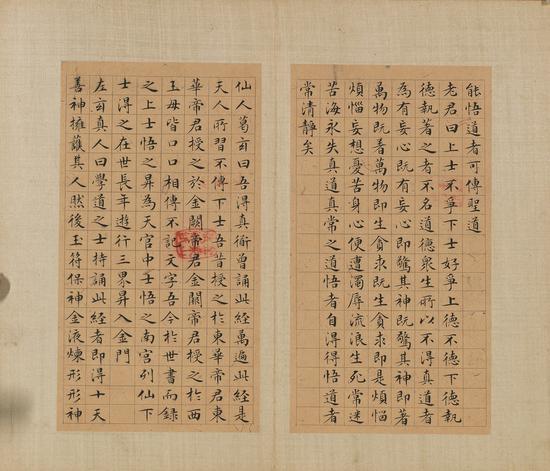 能悟道者可傳聖道
老君曰上士不爭下士好爭上德不德下德執
德執著之者不名道德衆生所以不得真道者
為有妄心既有妄心即驚其神既驚其神即著
萬物既著萬物即生貪求既生貪求即是煩惱
煩惱妄想憂苦身心便遭濁辱流浪生死常迷
苦海永失真道真常之道悟者自得得悟道者
常清靜矣
仙人葛玄曰吾得真衜曾誦此經萬過此經是
天人所習不傳下士吾昔授之於東華帝君東
華帝君授之於金闕帝君金闕帝君授之於西
王母皆口口相傳不記文字吾今於世書而錄
之上士悟之昇為天官中士悟之南宮列仙下
士得之在世長年遊行三界昇入金門
左玄真人曰學道之士持誦此經者即得十天
善神擁護其人然後玉符保神金液煉形形神